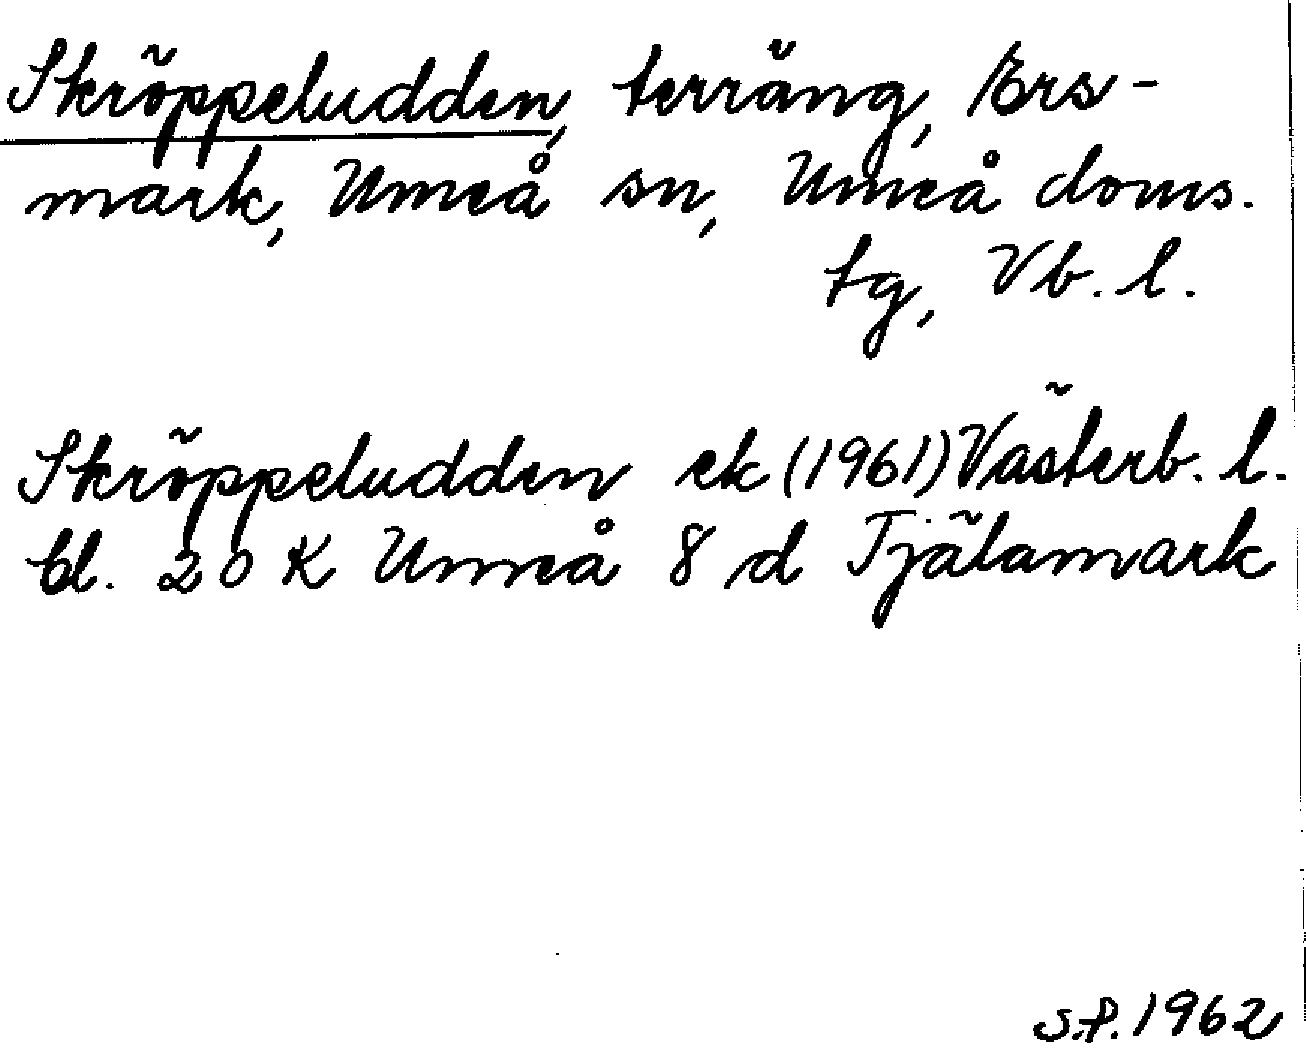 Skröppeludden, terräng, Ers-
mark, Umeå sn, Umeå doms.
tg, Vb. l.
Skröppeludden ek (1961) Västerb. l.
bl. 20 K Umeå 8 d Tjälamark
S.P. 1962